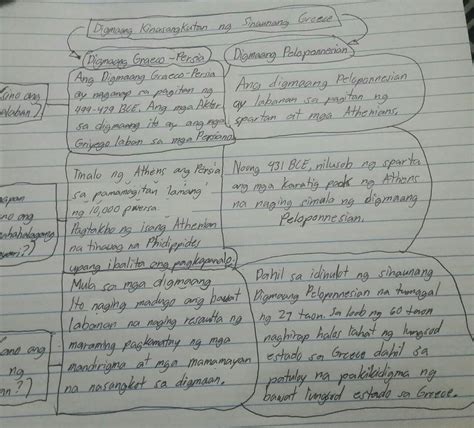 Digmaang Kinasangkutan ng Sinaunang Greece
Digmaang Graeco-Persia
Ang Digmaang Graeco-Persia
ay naganap sa pagitan ng
499-479 BCE. Ang mga Aktor
sa digmaang ito ay ang mga
Griyego laban sa mga Persiano
Digmaang Peloponnesian
Ang digmaang Peloponnesian
ay labanan sa pagitan ng
spartan at mga Athenians.
ano ang
Tinalo ng Athens ang Persia
sa pamamagitan lamang
ng 10,000 pwersa.
Pagtakbo ng isang Athenian
na tinawag na Phidippides
upang ibalita ang pagkapanalo.
Noong 431 BCE, nilusob ng sparta
ang mga karatig pook ng Athens
na naging simula ng digmaang
Peloponnesian.
ano ang
Mula sa mga digmaang
ito naging madugo ang bawat
labanan na naging resulta ng
maraming pagkamatay ng mga
mandirigma at mga mamamayan
na nasangkot sa digmaan.
Dahil sa idinulot ng sinaunang
Digmaang Peloponnesian na tumagal
ng 27 taon. Sa loob ng 60 taon
naghirap halos lahat ng lungsod
estado sa Greece dahil sa
patuloy na pakikidigma ng
bawat lungsod estado sa Greece.
ano ang
ng